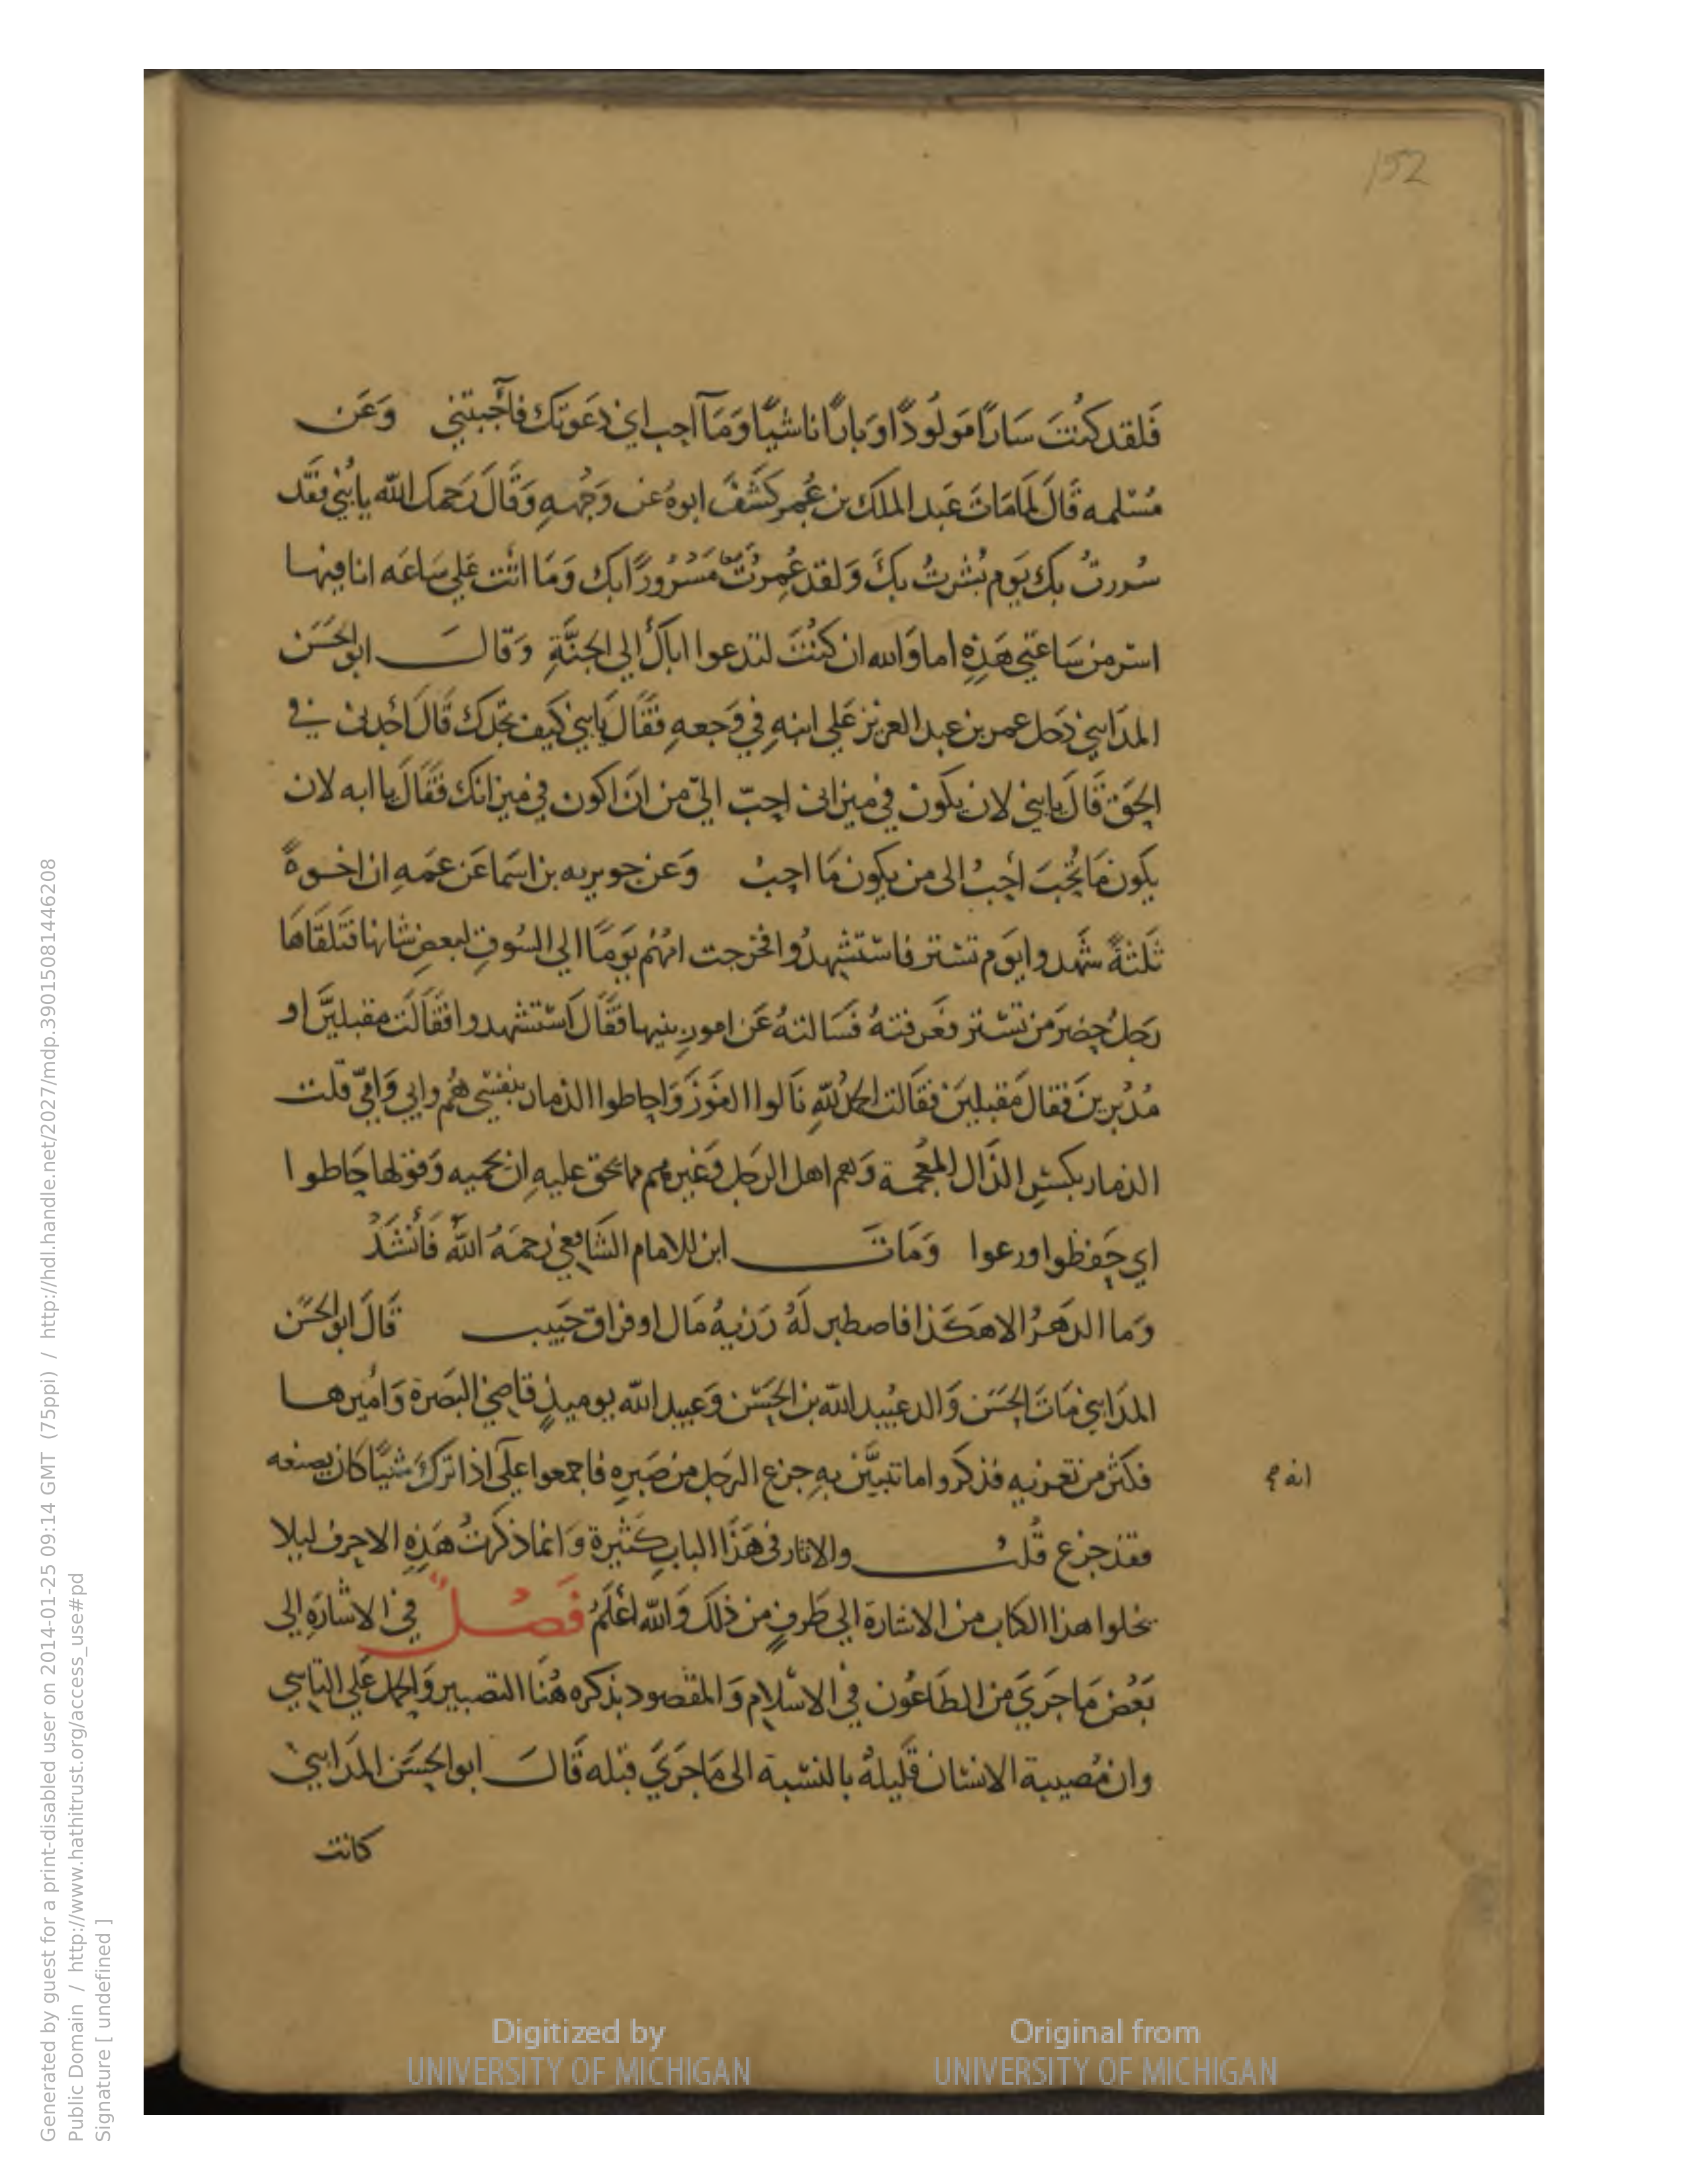 152
فَلقد كنُتَ سَارًا مَولُودًا وَبارًا ناشيًا وَمَآ احِب اني دَعَوتك فاَجَبتني وَعَن
مُسْلمه قَالَ لمامَاتَ عَبد الملك بن عُمر كشَفَ ابوهُ عن وَجْههِ وَقَالَ رَحمك الله يا بُنَي فقَد
سُررتُ بك يَوم بُشرتُ بكَ وَلقد عُمِرتُ مَسْرُورًا بك وَمَا اتت عَلي سَاعَه انا فيها
اسَر من سَاعَتي هَذِهِ اما وَالله ان كنُتَ لتدعوا اباكَ الي الجنَّةِ وَقالَ ابو الحَسَن
المدَايني دَخل عمر بن عبد العزيز عَلي ابنهِ في وَجعهِ فقَالَ يَا بني كيَف تجَدك قَالَ أجدني في
الحَق قَالَ يا بني لان يكون في ميزاني احِبّ اليّ من ان اكون في ميزانك فقَالَ يا ابه لان
يكَون مَا تُحبَ أحِبُ الي من يكون مَا احِبُ وَعَن جويريه بن اسَما عَن عَمهِ ان اخوةً
ثَلثةً شَهدوا يَوم تستر فاستشهدُوا فخَرجت امهُم يَومًا الي السُوقِ لبعضِ شانها فتَلقاهَا
رَجلُ حضَر من تستر فعَرفتهُ فسَالتهُ عَن امورِ بنيها فقَالَ استشهدوا فقَالَت مقبلينَ او
مُدْبرينَ فقَالَ مَقبلين فقَالت الحمدُ للهِ نَالوا الفَوزَ وَاحاطوا الذمار بنفسي هُم وابي وَامّي قلت
الذمار بكسرِ الذّال المعُجمة وَهم اهل الرجَل وَغيرهم مما يحق عليهِ ان يحميه وَقولها حَاطوا
اي حَفظوا ورعوا وَمَاتَ ابن للامام الشَافِعي رَحمَهُ اللهُ فَأنشَدَ
وَما الدهَرُ الا هَكَذا فاصطبر لَهُ رَزيهُ مَال او فراق حَبيب قَالَ ابو الحسَن
المدَايني مَاتَ الحَسَن وَالد عُبيد الله بن الحَسَن وَعبيد الله يوميذٍ قاضي البَصَرة وَاميرها
فكثر من تعزيه فذكروا ما تبَيّن بهِ جزع الرجَل من صَبرهِ فاجمعوا عَلَي اذا ترك شيًا كان يصنعه
انه صح
فقد جزع قُلت والاثار في هَذَا البابِ كَثيرة وَانما ذكرتُ هَذِهِ الاحرف ليلا
يخلوا هذا الكتاب من الاشارة الي طَرفٍ من ذلك وَالله اعْلَمُ فَصْلٌ في الاشارَهِ الي
بَعْض مَا جَرَيَ من الطَاعُون في الاسْلام وَالمقصود بذكره هُنَا التصبير وَالحمل عَلي التاسي
وان مُصيبة الانسَان قَليلهُ بالنسْبة الي مَا جَرَيَ قبله قَالَ ابو الحسَن المدَايني
كانت
Generated by guest for a print-disabled user on 2014-01-25 09:14 GMT (75ppi) / http://hdl.handle.net/2027/mdp.39015081446208
Public Domain / http://www.hathitrust.org/access_use#pd
Signature [ undefined ]
Digitized by
UNIVERSITY OF MICHIGAN
Original from
UNIVERSITY OF MICHIGAN